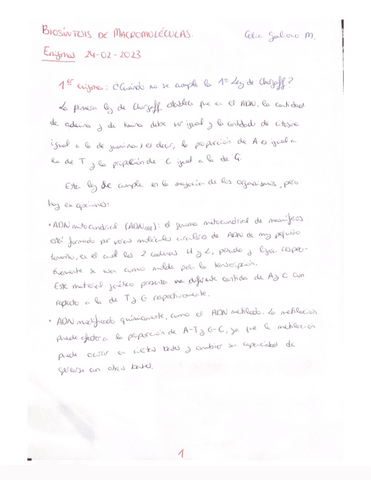 BIOSÍNTESIS DE MACROMOLÉCULAS. Celia M.
Enigmas 24-02-2023
1er enigma: ¿Cuándo no se cumple la 1ª Ley de Chargaff?
La primera ley de Chargaff establece que en el ADN, la cantidad
de adenina y de timina debe ser igual y la cantidad de citosina
igual a la de guanina, es decir, la proporción de A es igual a
la de T y la proporción de C igual a la de G.
Esta ley se cumple en la mayoría de los organismos, pero
hay excepciones:
• ADN mitocondrial: el genoma mitocondrial de mamíferos
está formado por varias moléculas circulares de ADN de muy pequeño
tamaño, en el cual las 2 cadenas H y L, pesada y ligera respec-
tivamente se usan como molde para la transcripción.
Este material genético presenta una diferente cantidad de A y C con
respecto a la de T y G respectivamente.
• ADN modificado químicamente, como el ADN metilado. La metilación
puede afectar a la proporción de A-T y G-C, ya que la metilación
puede ocurrir en ciertas bases y cambiar su capacidad de
con otras bases.
1